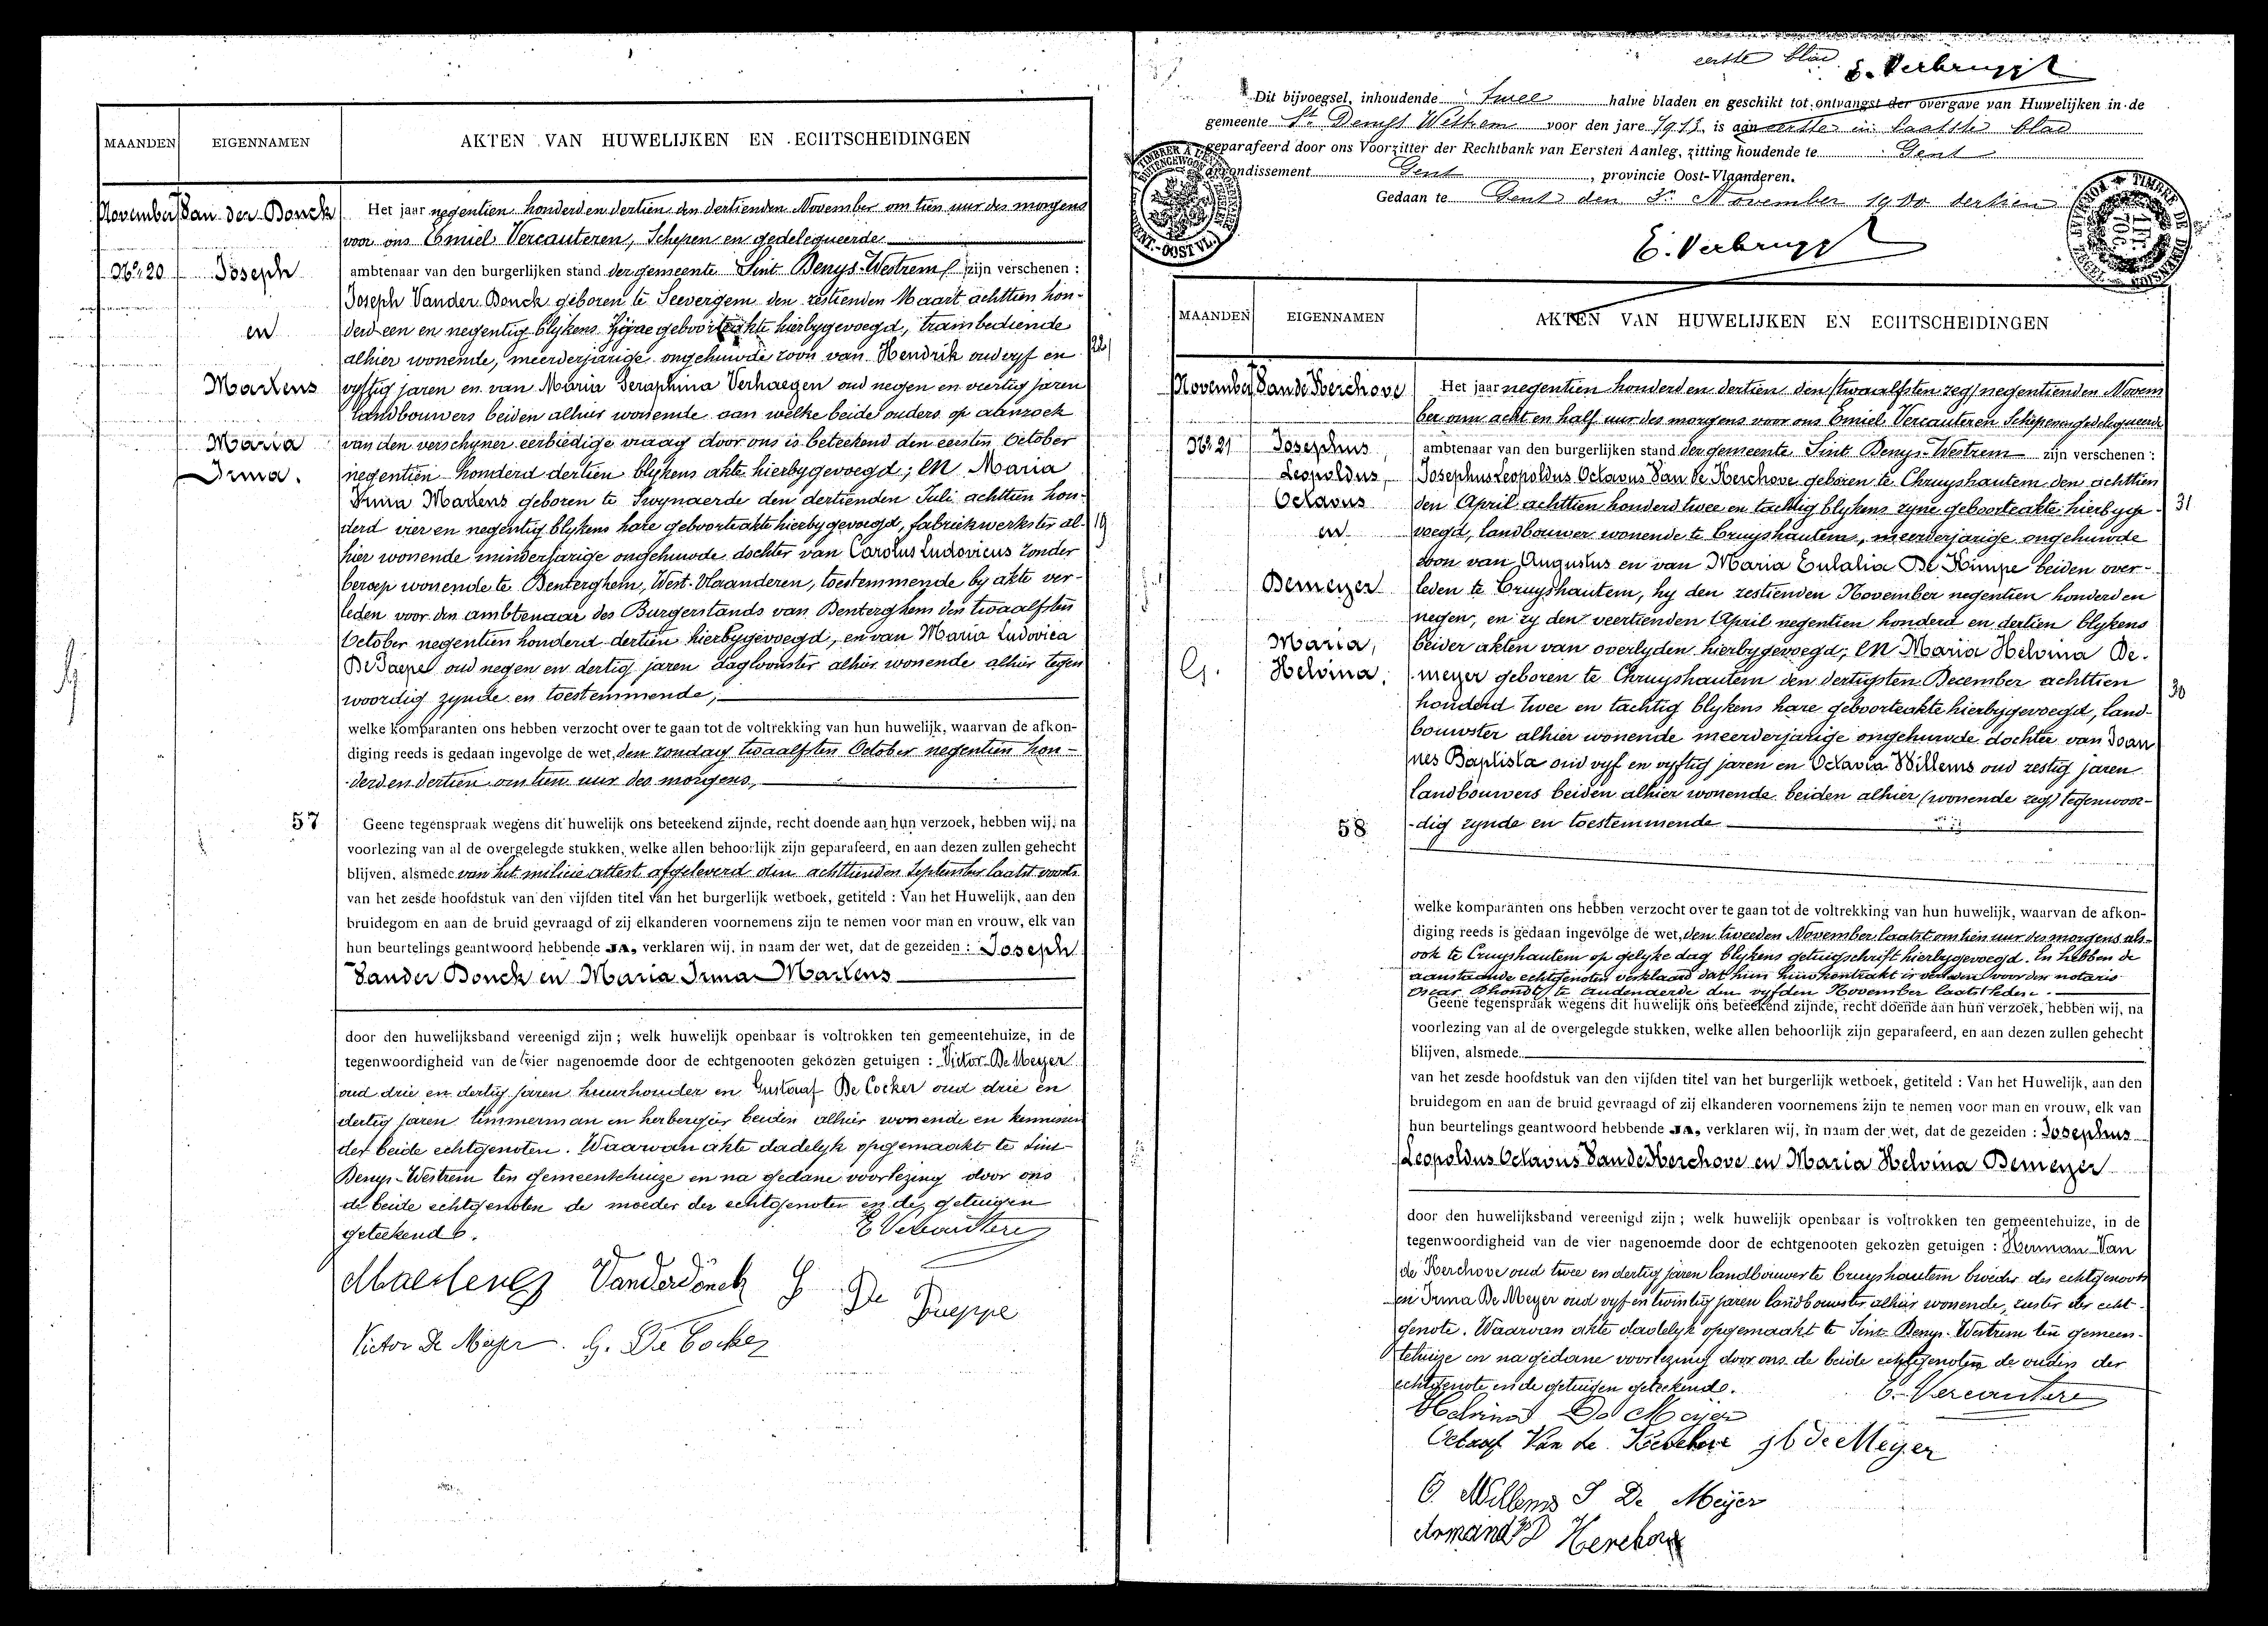 MAANDEN EIGENNAMEN AKTEN VAN HUWELIJKEN EN ECHTSCHEIDINGEN
November Van der Donck
Nr 20 Joseph
en
Martens
Maria
Irma.
57
Het jaar negentien honderd en dertien den dertienden November om tien uur des morgens
voor ons Emiel Vercauteren, Schepen en gedelegueerde
ambtenaar van den burgerlijken stand der gemeente Sint Denys-Westrem zijn verschenen :
Joseph Vander Donck geboren te Seevergem den zestienden Maart achttien hon-
derd een en negentig blykens zyne geboorteakte hierbygevoegd, trambediende
alhier wonende, meerderjarige ongehuwde zoon van Hendrik oud vyf en
22
vyftig jaren en van Maria Seraphina Verhaegen oud negen en veertig jaren
landbouwers beiden alhier wonende aan welke beide ouders op aanzoek
van den verschyner eerbiedige vraag door ons is beteekend den eersten October
negentien honderd dertien blykens akte hierbygevoegd; en Maria
Irma Martens geboren te Swynaerde den dertienden Juli achttien hon-
derd vier en negentig blykens hare geboorteakte hierbygevoegd, fabriekwerkster al-
19
hier wonende minderjarige ongehuwde dochter van Carolus Ludovicus zonder
beroep wonende te Denterghem, West-Vlaanderen, toestemmende by akte ver-
leden voor den ambtenaar des Burgerstands van Denterghem den twaalfsten
October negentien honderd dertien hierbygevoegd, en van Maria Ludovica
De Paepe oud negen en dertig jaren dagloonster alhier wonende alhier tegen
woordig zynde en toestemmende;
welke komparanten ons hebben verzocht over te gaan tot de voltrekking van hun huwelijk, waarvan de afkon-
diging reeds is gedaan ingevolge de wet, den zondag twaalfsten October negentien hon-
derd en dertien om tien uur des morgens,
Geene tegenspraak wegens dit huwelijk ons beteekend zijnde, recht doende aan hun verzoek, hebben wij, na
voorlezing van al de overgelegde stukken, welke allen behoorlijk zijn geparafeerd, en aan dezen zullen gehecht
blijven, alsmede van het milicie attest afgeleverd den achttienden September laatst voorts
van het zesde hoofdstuk van den vijfden titel van het burgerlijk wetboek, getiteld : Van het Huwelijk, aan den
bruidegom en aan de bruid gevraagd of zij elkanderen voornemens zijn te nemen voor man en vrouw, elk van
hun beurtelings geantwoord hebbende JA, verklaren wij, in naam der wet, dat de gezeiden : Joseph
Vander Donck en Maria Irma Martens
door den huwelijksband vereenigd zijn ; welk huwelijk openbaar is voltrokken ten gemeentehuize, in de
tegenwoordigheid van de vier nagenoemde door de echtgenooten gekozen getuigen : Victor De Meyer
oud drie en dertig jaren huurhouder en Gustaaf De Cocker oud drie en
dertig jaren timmerman en herbergier beiden alhier wonende en kennissen
der beide echtgenoten. Waarvan akte dadelyk opgemaakt te Sint
Denys-Westrem ten gemeentehuize en na gedane voorlezing door ons
de beide echtgenoten de moeder der echtgenoten en de getuigen
geteekend.
E Vercauteren
Vanderdonck De Paeppe
Victor De Meyer. G. De Cocker
eerste blad E. Verbrugge
Dit bijvoegsel, inhoudende twee halve bladen en geschikt tot ontvangst der overgave van Huwelijken in de
gemeente St Denijs Westrem voor den jare 1913, is aan eerste en laatste blad
geparafeerd door ons Voorzitter der Rechtbank van Eersten Aanleg, zitting houdende te Gent
arrondissement Gent, provincie Oost-Vlaanderen.
Gedaan te Gent den November 1900 dertien
E. Verbrugge
MAANDEN EIGENNAMEN AKTEN VAN HUWELIJKEN EN ECHTSCHEIDINGEN
November Van de Kerchove
Nr 21 Josephus,
Leopoldus,
Octavus
en
Demeyer
Maria,
Helvina,
58
Het jaar negentien honderd en dertien den (twaalfsten zeg) negentienden Novem
ber om acht en half uur des morgens voor ons Emiel Vercauteren Schepen en gedelegueerde
ambtenaar van den burgerlijken stand der gemeente Sint Denys-Westrem zijn verschenen :
Josephus Leopoldus Octavus Van de Kerchove geboren te Cruyshautem den achttien
den April achttien honderd twee en tachtig blykens zyne geboorteakte hierbyge-
31
voegd, landbouwer wonende te Cruyshautem, meerderjarige ongehuwde
zoon van Augustus en van Maria Eulalia De Kimpe beiden over-
leden te Cruyshautem, hy den zestienden November negentien honderd en
negen, en zy den veertienden April negentien honderd en dertien blykens
beider akten van overlyden hierbygevoegd; en Maria Helvina De-
meyer geboren te Cruyshautem den dertigsten December achttien
30
honderd twee en tachtig blykens hare geboorteakte hierbygevoegd, land-
bouwster alhier wonende meerderjarige ongehuwde dochter van Joan
nes Baptista oud vyf en vyftig jaren en Octavia Willems oud zestig jaren
landbouwers beiden alhier wonende beiden alhier (wonende zeg) tegenwoor-
dig zynde en toestemmende
welke komparanten ons hebben verzocht over te gaan tot de voltrekking van hun huwelijk, waarvan de afkon-
diging reeds is gedaan ingevolge de wet, den tweeden November laatst om tien uur des morgens als-
ook te Cruyshautem op gelyke dag blykens getuigschrift hierbygevoegd. En hebben de
aanstaande echtgenoten verklaard dat hun huwkontrakt is verleden voor den notaris
Oscar Dhondt te Audenaerde den vyfden November laatstleden.
Geene tegenspraak wegens dit huwelijk ons beteekend zijnde, recht doende aan hun verzoek, hebben wij, na
voorlezing van al de overgelegde stukken, welke allen behoorlijk zijn geparafeerd, en aan dezen zullen gehecht
blijven, alsmede
van het zesde hoofdstuk van den vijfden titel van het burgerlijk wetboek, getiteld : Van het Huwelijk, aan den
bruidegom en aan de bruid gevraagd of zij elkanderen voornemens zijn te nemen voor man en vrouw, elk van
hun beurtelings geantwoord hebbende JA, verklaren wij, in naam der wet, dat de gezeiden : Josephus
Leopoldus Octavus Van de Kerchove en Maria Helvina Demeyer
door den huwelijksband vereenigd zijn ; welk huwelijk openbaar is voltrokken ten gemeentehuize, in de
tegenwoordigheid van de vier nagenoemde door de echtgenooten gekozen getuigen : Herman Van
de Kerchove oud twee en dertig jaren landbouwer te Cruyshautem broeder des echtgenoots
en Irma De Meyer oud vyf en twintig jaren landbouwster alhier wonende, zuster der echt-
genote. Waarvan akte dadelyk opgemaakt te Sint-Denys-Westrem ten gemeen-
tehuize en na gedane voorlezing door ons de beide echtgenoten de ouders der
echtgenote en de getuigen geteekend.
E. Vercauteren
Helvina De Meijer
Octaaf Van de Kerchove j b de Meyer
O. Willems I De Meijer
Armand VD Kerchove